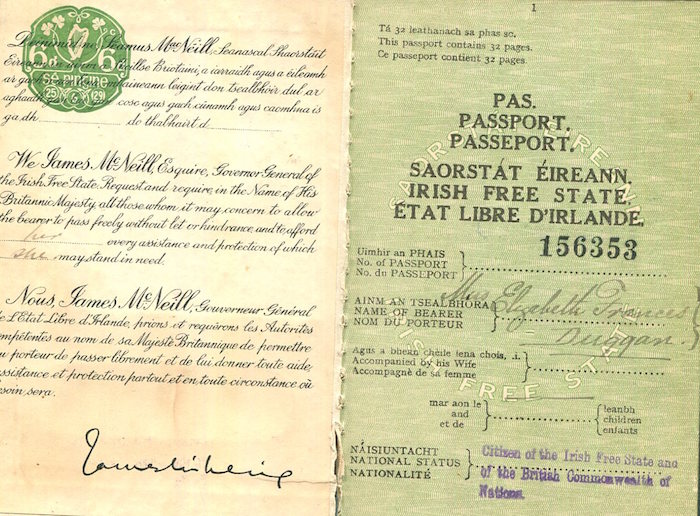 6d 6
sé pingine
25 29
Deonimidne, Séamus MacNeill, Seanascal Shaorstáit
Éireann, in Réillse Briotaini, a iarraidh agus a éileamh
ar gach bhaineann leigint don tsealbhóir dul ar
aghaidh cose agus gach cúnamh agus caomhna is
ga dh do thabhairt d
We James McNeill, Esquire, Governor General of
the Irish Free State Request and require in the Name of His
Britannic Majesty all those whom it may concern to allow
the bearer to pass freely without let or hindrance, and to afford
her every assistance and protection of which
she may stand in need.
Nous, James McNeill, Gouverneur Général
de L'Etat Libre d'Irlande, prions et requérons les Autorités
compétentes au nom de sa Majesté Britannique de permettre
au porteur de passer librement et de lui donner toute aide,
assistance et protection partout et en toute circonstance où
besoin sera.
1
Tá 32 leathanach sa phas so.
This passport contains 32 pages.
Ce passeport contient 32 pages.
PAS.
PASSPORT.
PASSEPORT.
SAORSTÁT ÉIREANN.
IRISH FREE STATE.
ÉTAT LIBRE D'IRLANDE.
Uimhir an PHAIS
No. of PASSPORT
No. du PASSEPORT
156353
AINM AN TSEALBHÓRA
NAME OF BEARER
NOM DU PORTEUR
Elizabeth Frances
Duggan.
Agus a bhean chéile lena chois, .i.
Accompanied by his Wife
Accompagné de sa femme
mar aon le
and
et de
leanbh
children
enfants
NÁISIUNTACHT
NATIONAL STATUS
NATIONALITÉ
Citizen of the Irish Free State and
of the British Commonwealth of
Nations.